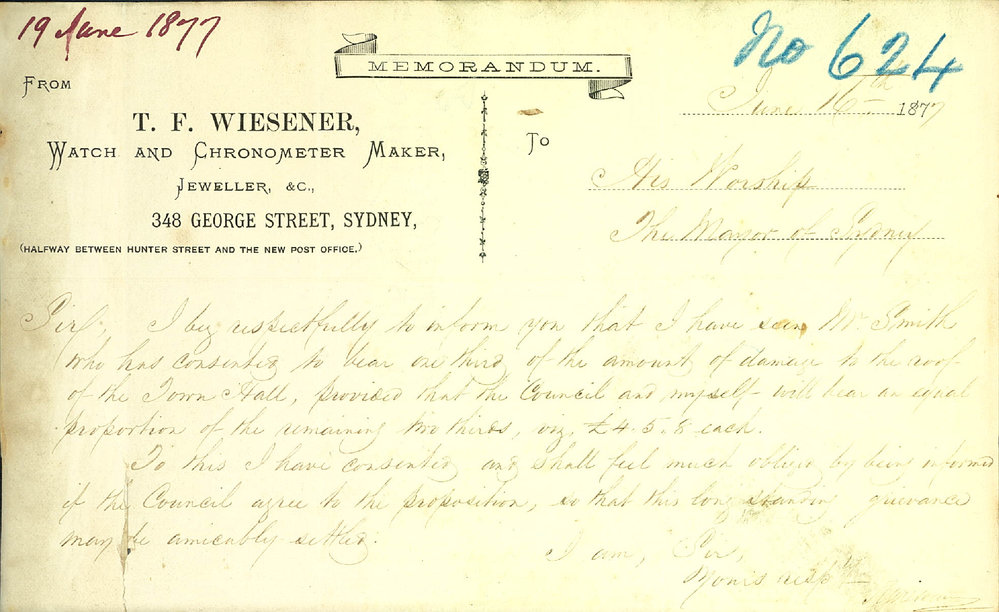 19 June 1877
No 624
MEMORANDUM.
FROM
T. F. WIESENER,
WATCH AND CHRONOMETER MAKER,
JEWELLER, &C.,
348 GEORGE STREET, SYDNEY,
(HALFWAY BETWEEN HUNTER STREET AND THE NEW POST OFFICE.)
June 16th 1877
To
His Worship
The Mayor of Sydney
Sir, I beg respectfully to inform you that I have seen Mr Smith
who has consented to bear one third of the amount of damage to the roof
of the Town Hall, provided that the Council and myself will bear an equal
proportion of the remaining two thirds, viz, £4.5.8 each.
To this I have consented and shall feel much obliged by being informed
if the Council agree to the proposition, so that this long standing grievance
may be amicably settled.
I am, Sir,
Yours respy